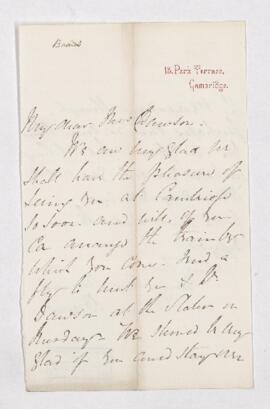 Brands
18, Park Terrace,
Cambridge.
My dear Mrs Dawson.
We are very glad we
shall have the pleasure of
seeing you at Cambridge
so soon. and will, if you
can arrange the train by
which you come, send a
fly to meet you & Dr
Dawson at the Station on
Thursday. We should be very
glad if you could stay over